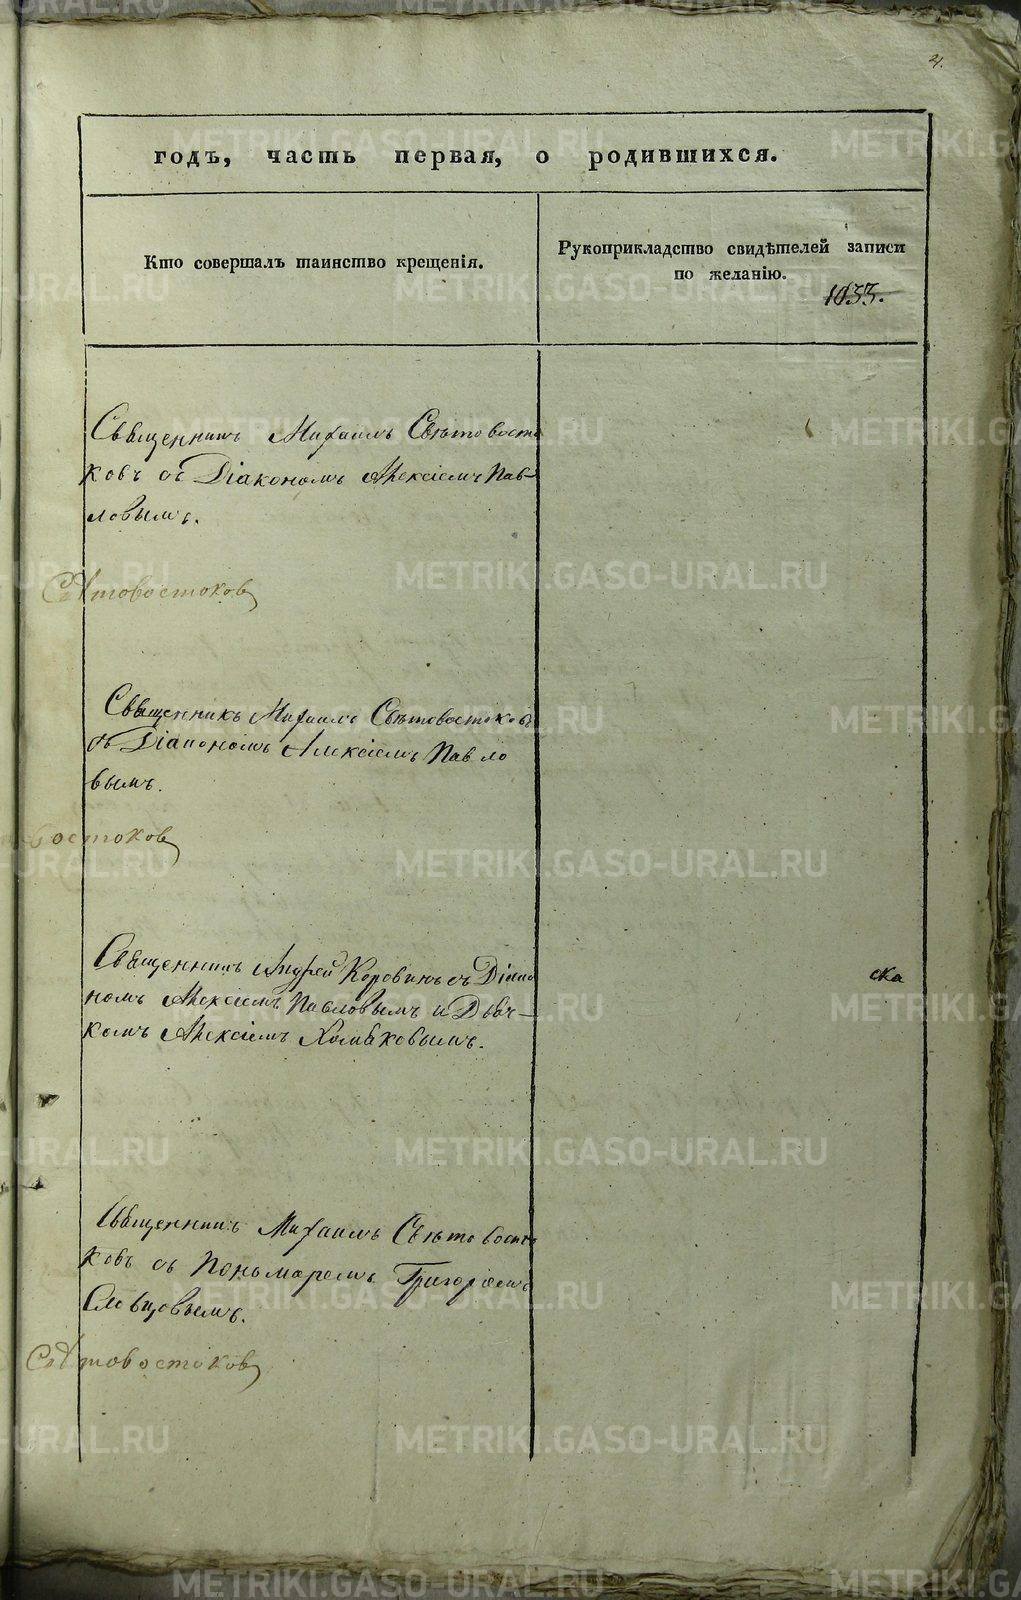 годъ, часть первая, о родившихся.
Кто совершалъ таинство крещенія.
Рукоприкладство свидѣтелей записи
по желанію.
1833.
Священникъ Михаилъ Свѣтовосто
ковъ съ Діакономъ Алексіемъ Пав-
ловымъ.
Свѣтовостоков
Священникъ Михаилъ Свѣтовостоковъ
съ Діакономъ Алексіемъ Павло
вымъ.
востоков
Священникъ Андрей Коровинъ съ Діако
номъ Алексіемъ Павловымъ и Дьяч-
комъ Алексіемъ Хомяковымъ.
ска
Священникъ Михаилъ Свѣтовосто
ковъ съ Пономаремъ Григоріемъ
Словцовымъ.
Свѣтовостоков
METRIKI.GASO-URAL.RU